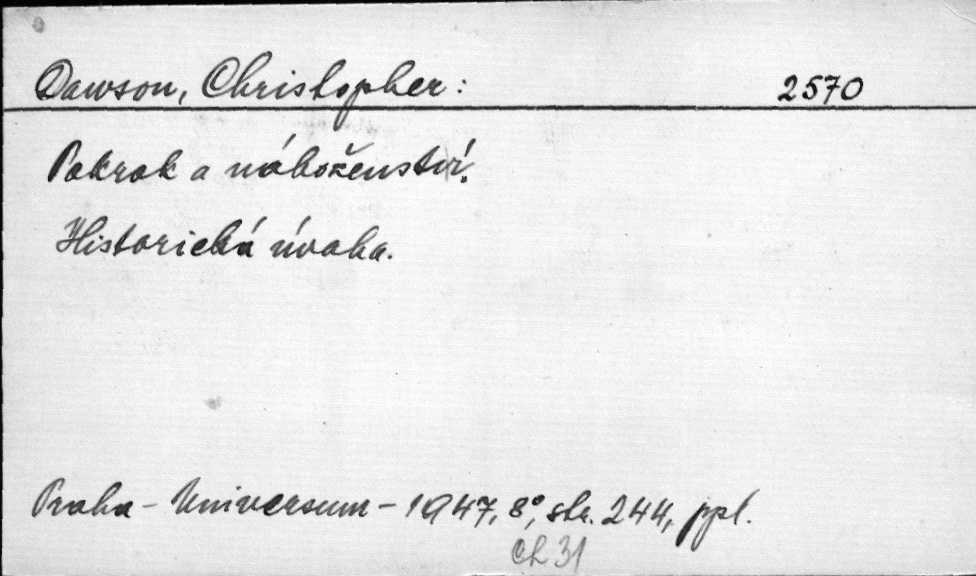 Dawson, Christopher: 2570
Pokrok a náboženství.
Historická úvaha.
Praha - Universum - 1947, 8°, str. 244, ppl.
Ch 31